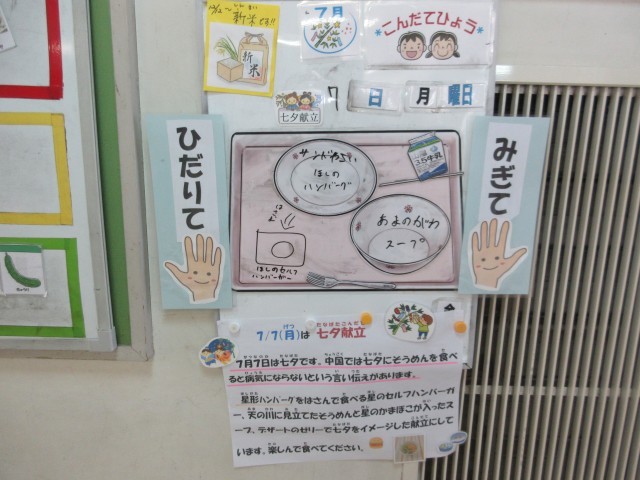 新米です!!
新米
7月
*こんだてひょう*
七夕献立
7 日 月 曜日
ひだりて
みぎて
サンドやさい
ほしの
ハンバーグ
3.5牛乳
あまのがわ
スープ
ほしのセルフ
ハンバーガー
7/7(月)は 七夕献立
7月7日は七夕です。中国では七夕にそうめんを食べ
ると病気にならないという言い伝えがあります。
星形ハンバーグをはさんで食べる星のセルフハンバーガ
ー、天の川に見立てたそうめんと星のかまぼこが入ったス
ープ、デザートのゼリーで七夕をイメージした献立にして
います。楽しんで食べてください。